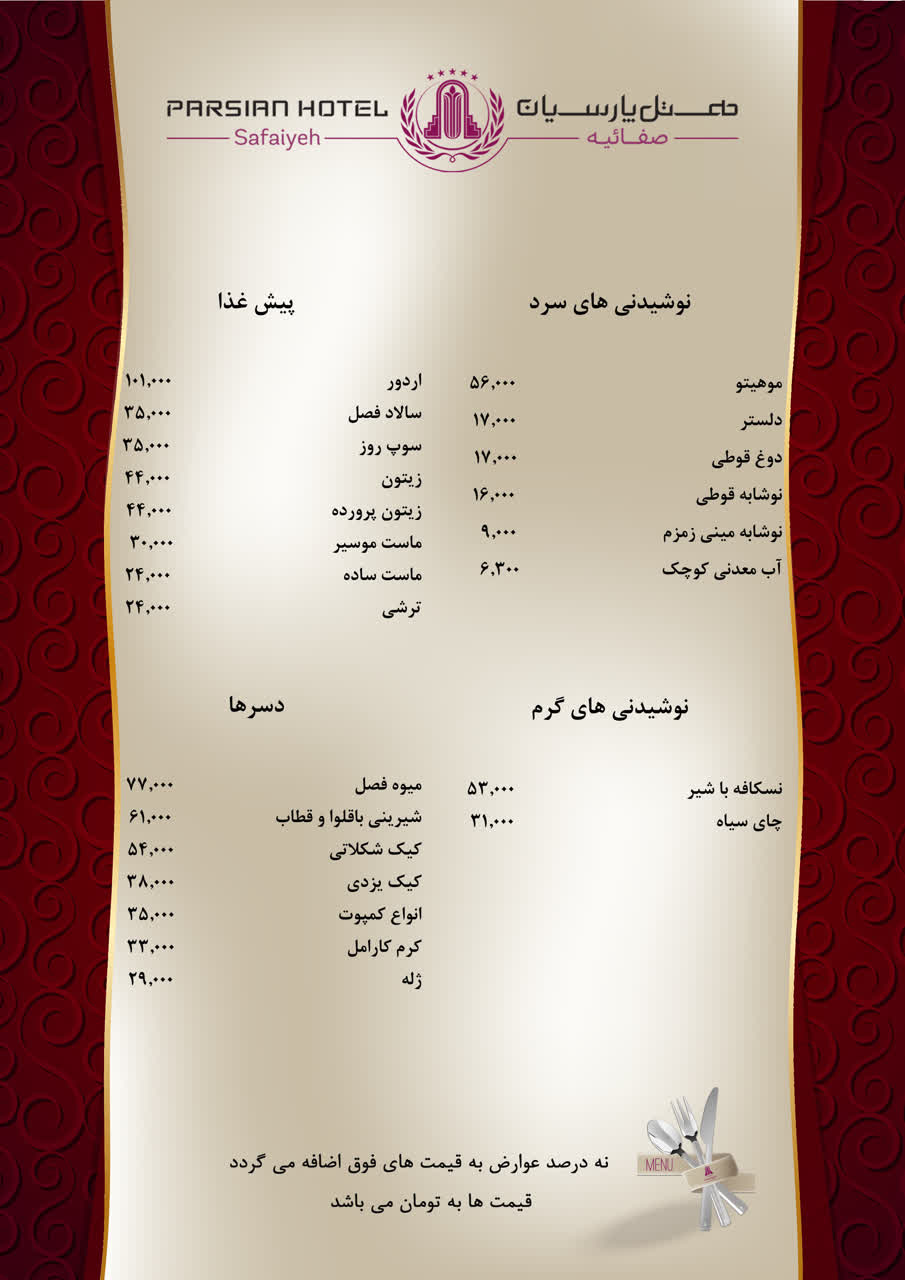 PARSIAN HOTEL
Safaiyeh
هتل پارسیان
صفائیه
نوشیدنی های سرد
موهیتو ۵۶,۰۰۰
دلستر ۱۷,۰۰۰
دوغ قوطی ۱۷,۰۰۰
نوشابه قوطی ۱۶,۰۰۰
نوشابه مینی زمزم ۹,۰۰۰
آب معدنی کوچک ۶,۳۰۰
پیش غذا
اردور ۱۰۱,۰۰۰
سالاد فصل ۳۵,۰۰۰
سوپ روز ۳۵,۰۰۰
زیتون ۴۴,۰۰۰
زیتون پرورده ۴۴,۰۰۰
ماست موسیر ۳۰,۰۰۰
ماست ساده ۲۴,۰۰۰
ترشی ۲۴,۰۰۰
نوشیدنی های گرم
نسکافه با شیر ۵۳,۰۰۰
چای سیاه ۳۱,۰۰۰
دسرها
میوه فصل ۷۷,۰۰۰
شیرینی باقلوا و قطاب ۶۱,۰۰۰
کیک شکلاتی ۵۴,۰۰۰
کیک یزدی ۳۸,۰۰۰
انواع کمپوت ۳۵,۰۰۰
کرم کارامل ۳۳,۰۰۰
ژله ۲۹,۰۰۰
نه درصد عوارض به قیمت های فوق اضافه می گردد
قیمت ها به تومان می باشد
MENU